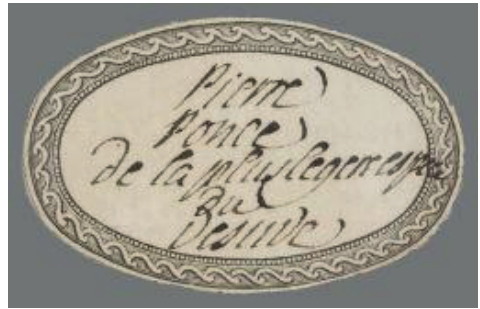 Pierre
Ponce
de la plus legere espece
du
Vesuve